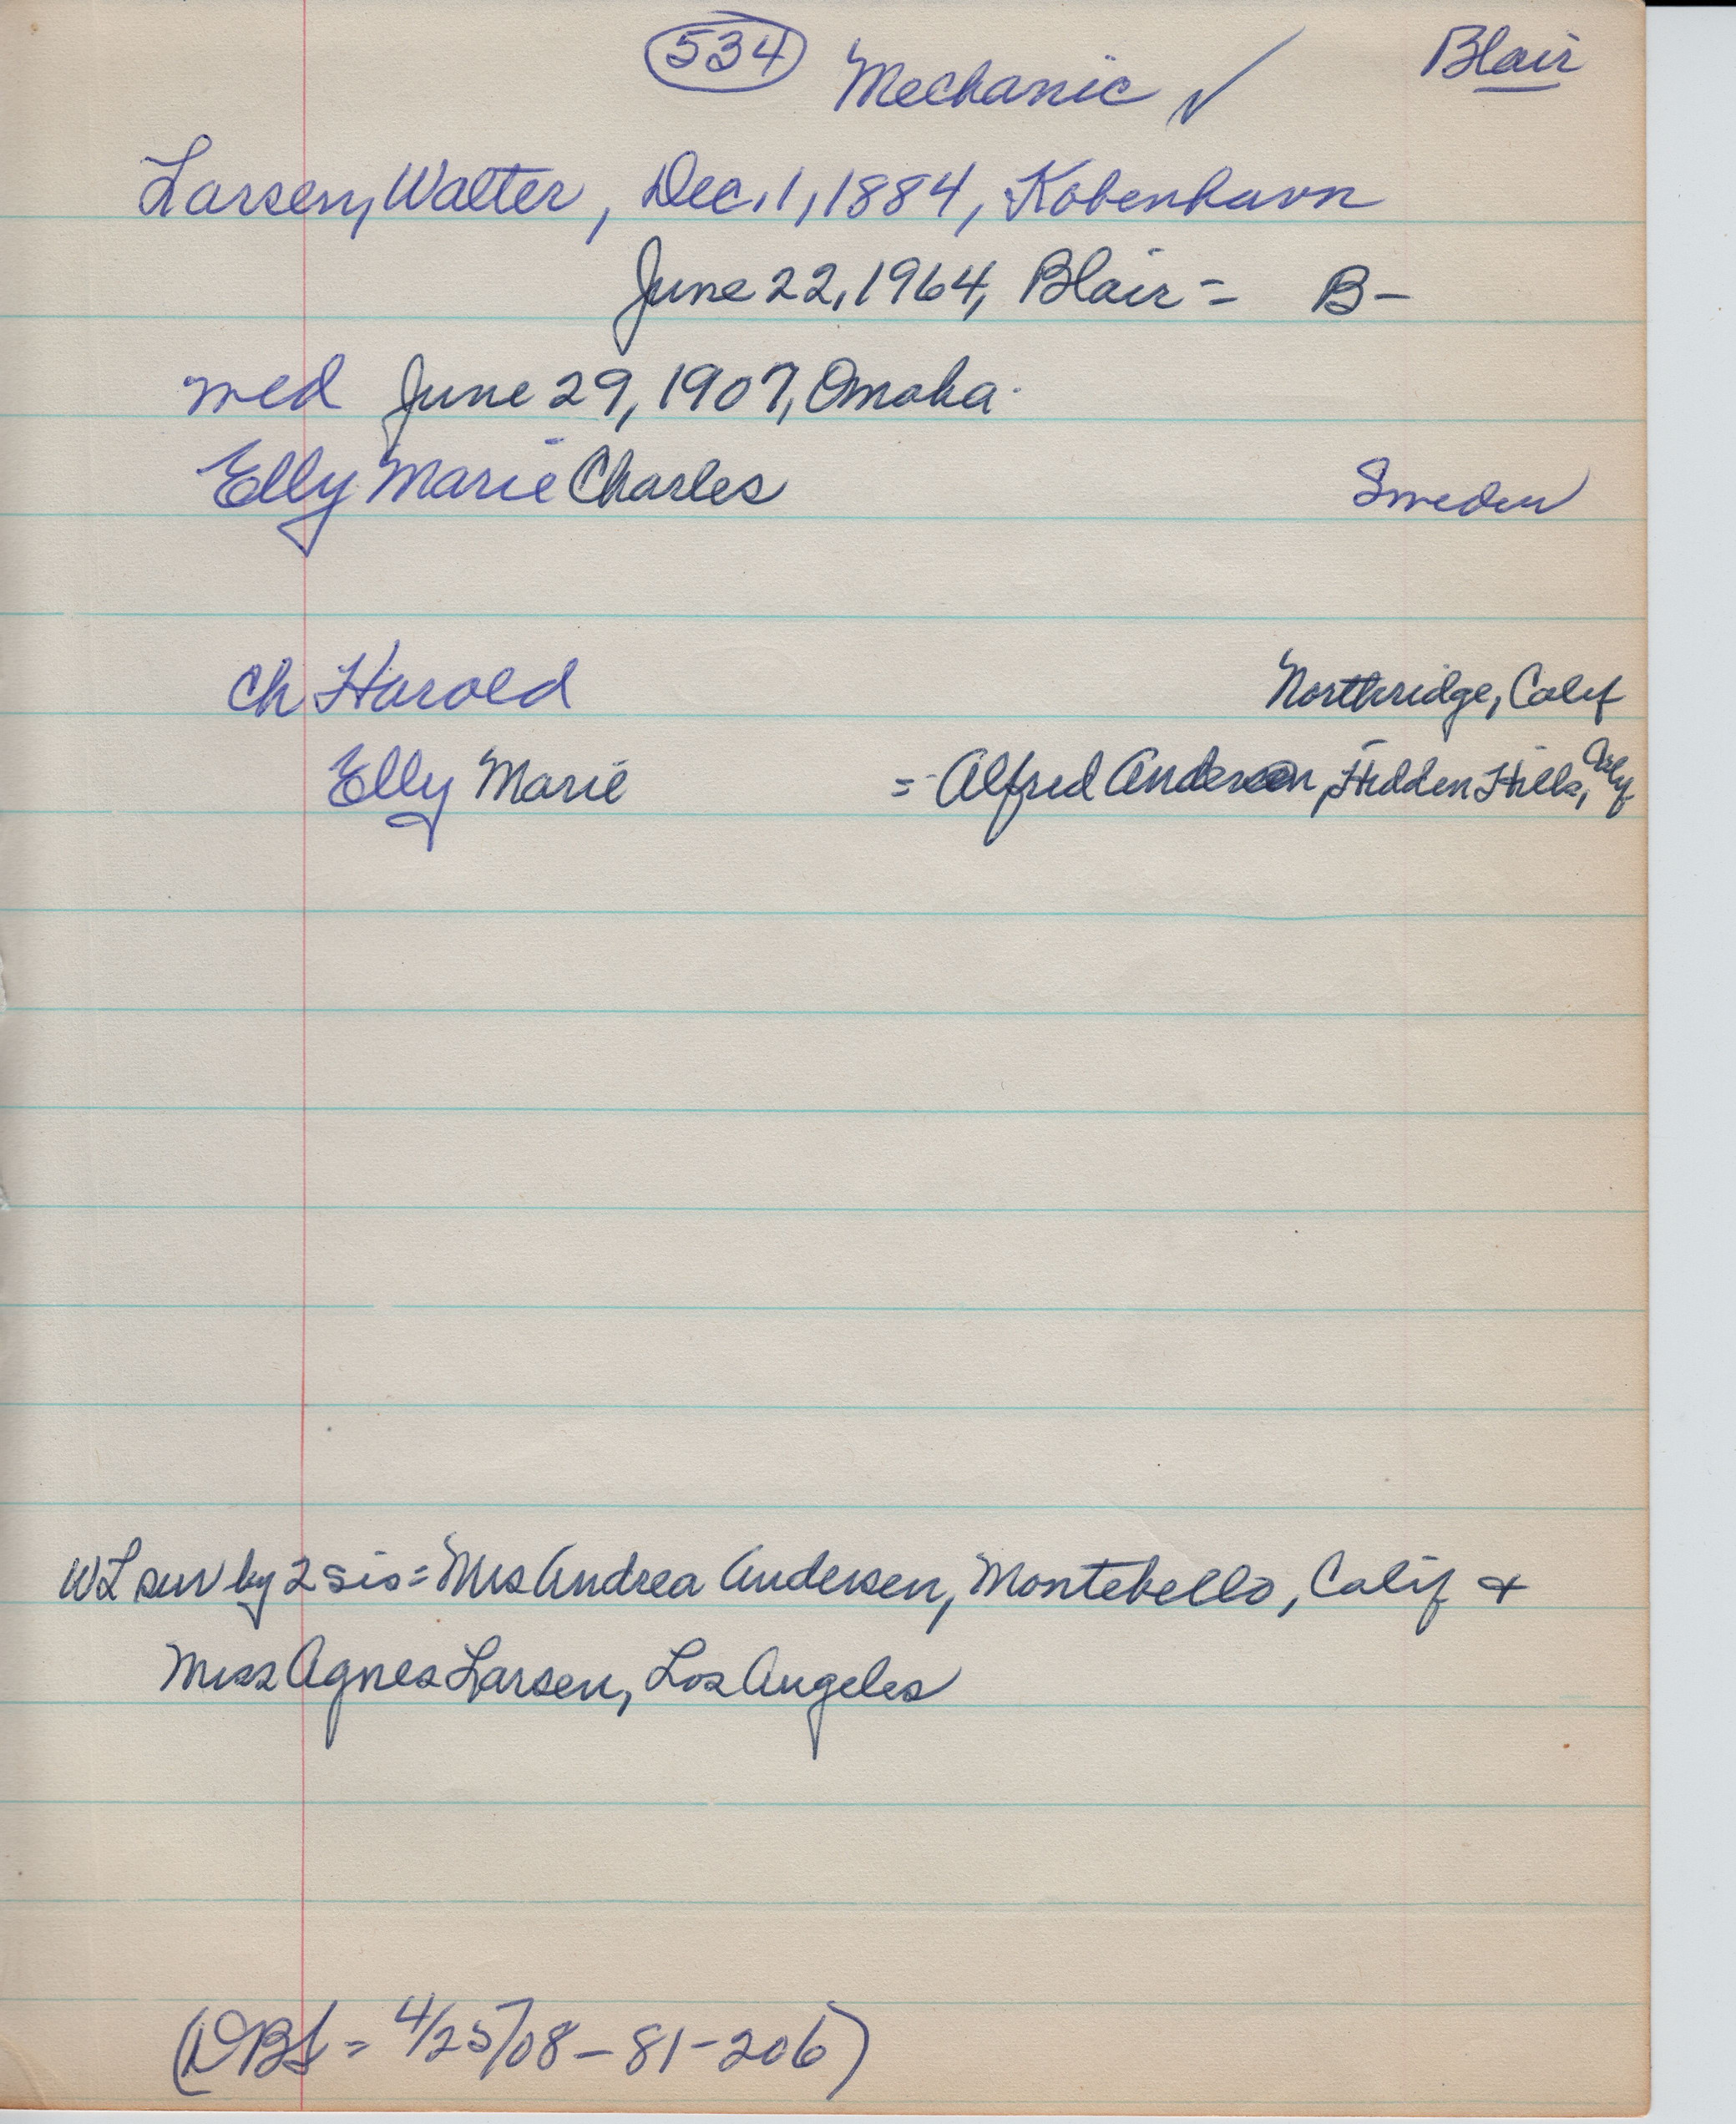 534 Mechanic ✓ Blair
Larsen, Walter, Dec. 1, 1884, Kobenhavn
June 22, 1964, Blair = B-
med June 29, 1907, Omaha.
Elly Marie Charles Sweden
Ch Harold Northridge, Calif
Elly Marie = Alfred Andersen, Hidden Hills, Calif
WL surv by 2 sis = Mrs Andrea Andersen, Montebello, Calif +
Miss Agnes Larsen, Los Angeles
(DBS = 4/25/08 - 81-206)